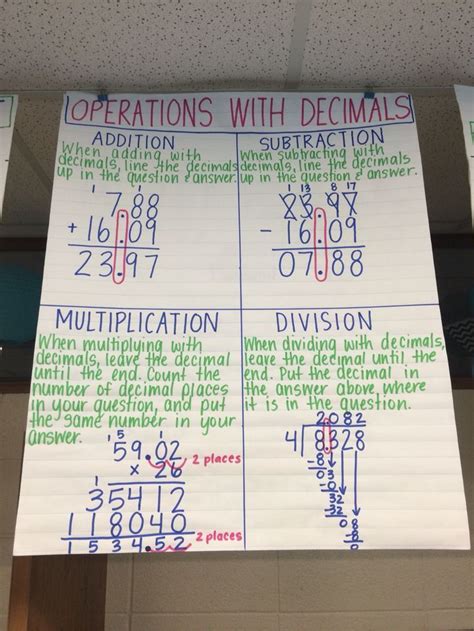 OPERATIONS WITH DECIMALS
ADDITION
When adding with
decimals, line the decimals
up in the question & answer.
1
7.88
+ 16.09
23.97
SUBTRACTION
When subtracting with
decimals, line the decimals
up in the question & answer.
1 13 8 17
23.97
- 16.09
07.88
MULTIPLICATION
When multiplying with
decimals, leave the decimal
until the end. Count the
number of decimal places
in your question, and put
the same number in your
answer.
1 5 1
59.02 2 places
× 26
1
35412
118040
1534.52 2 places
DIVISION
When dividing with decimals,
leave the decimal until the
end. Put the decimal in
the answer above, where
it is in the question.
2.082
4 8.328
-8
03
-0
32
32
0 8
-8
0